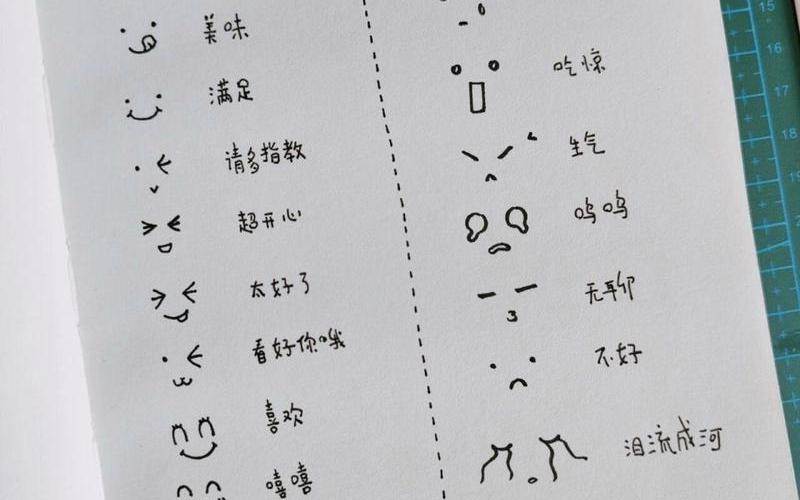 美味
满足
请多指教
超开心
太好了
看好你哦
喜欢
嘻嘻
吃惊
生气
呜呜
无聊
不好
泪流成河
15
16
17
18